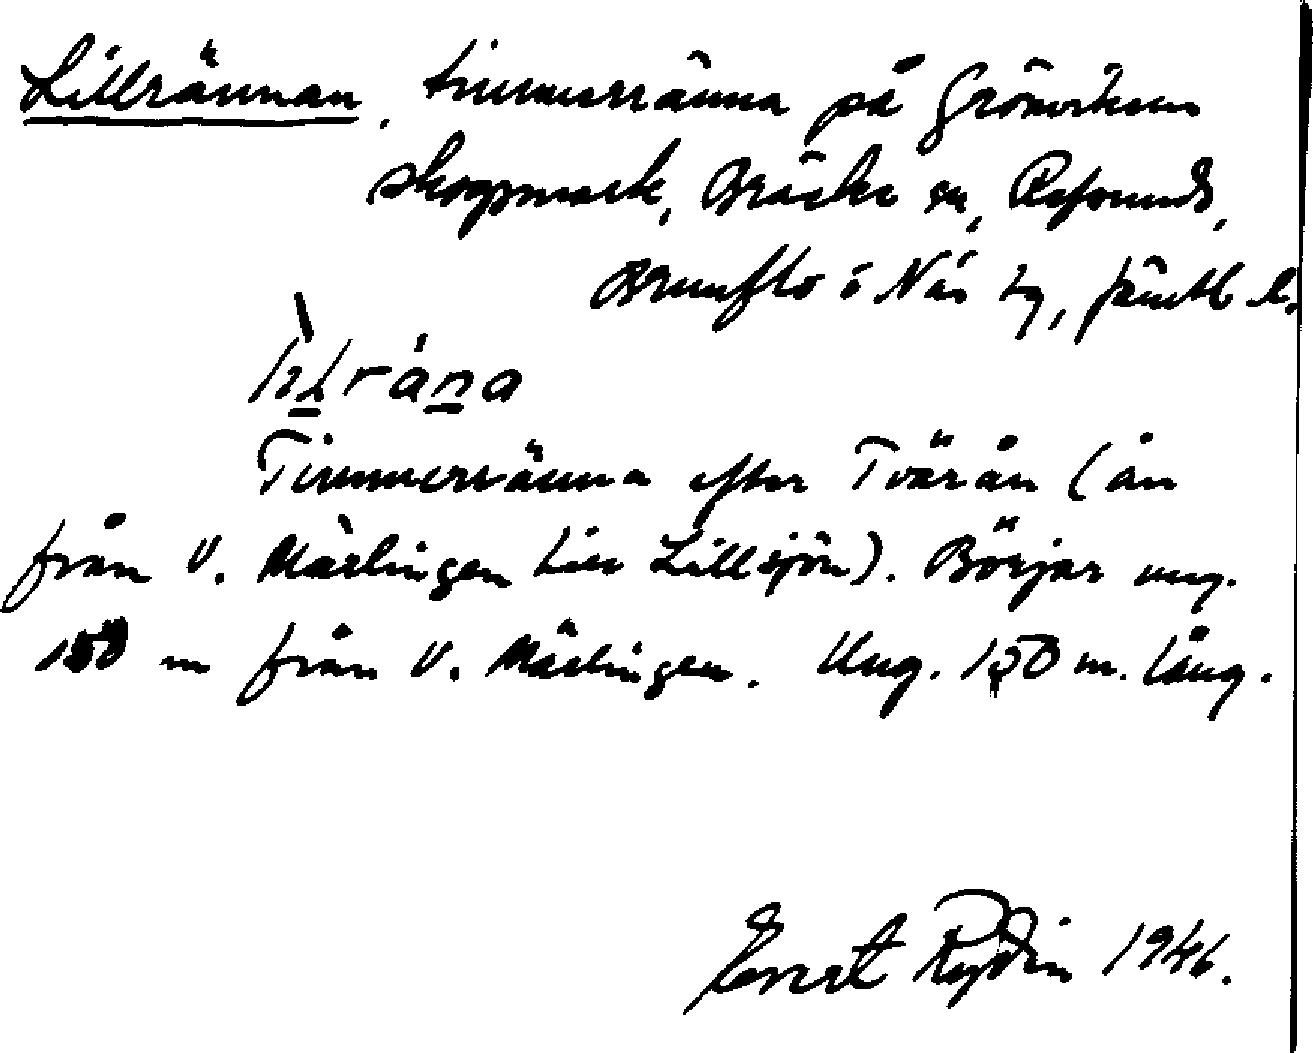 Lillrännan, timmerränna på Grönvikens
skogsmark, Bräcke sn, Refsunds,
Brunflo o Näs tg, Jämtl. l.
Timmerränna efter Tvärån (ån
från V. Märlingen till Lillsjön). Börjar ung.
150 m från V. Märlingen. Ung. 150 m. lång.
Ernst Rydin 1946.